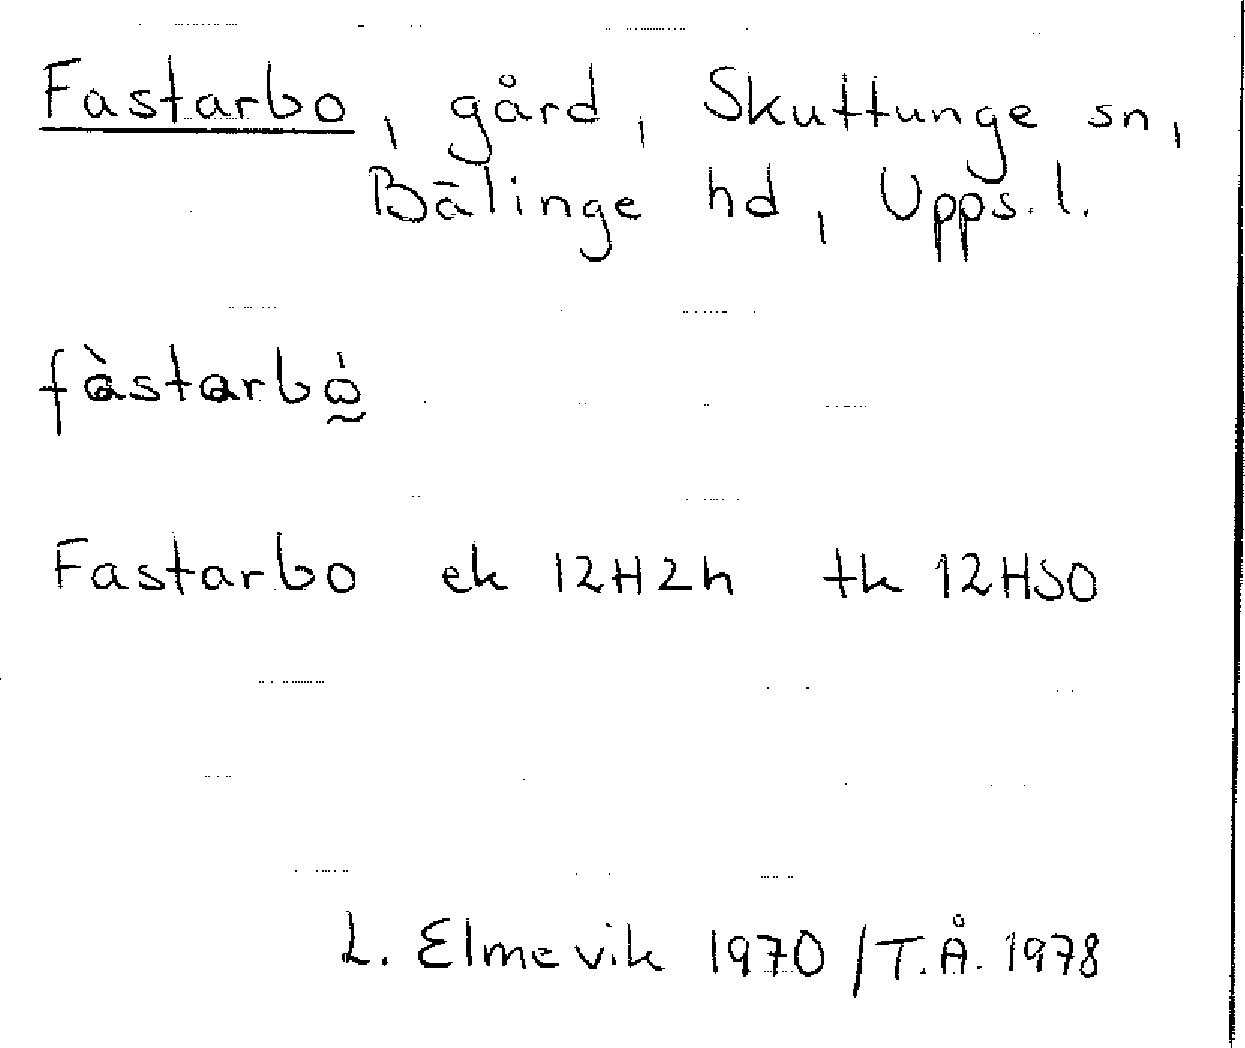 Fastarbo, gård, Skuttunge sn,
Bälinge hd, Upps. l.
fàstarbò̰
Fastarbo ek 12H2h tk 12HSO
L. Elmevik 1970 / T.Å. 1978